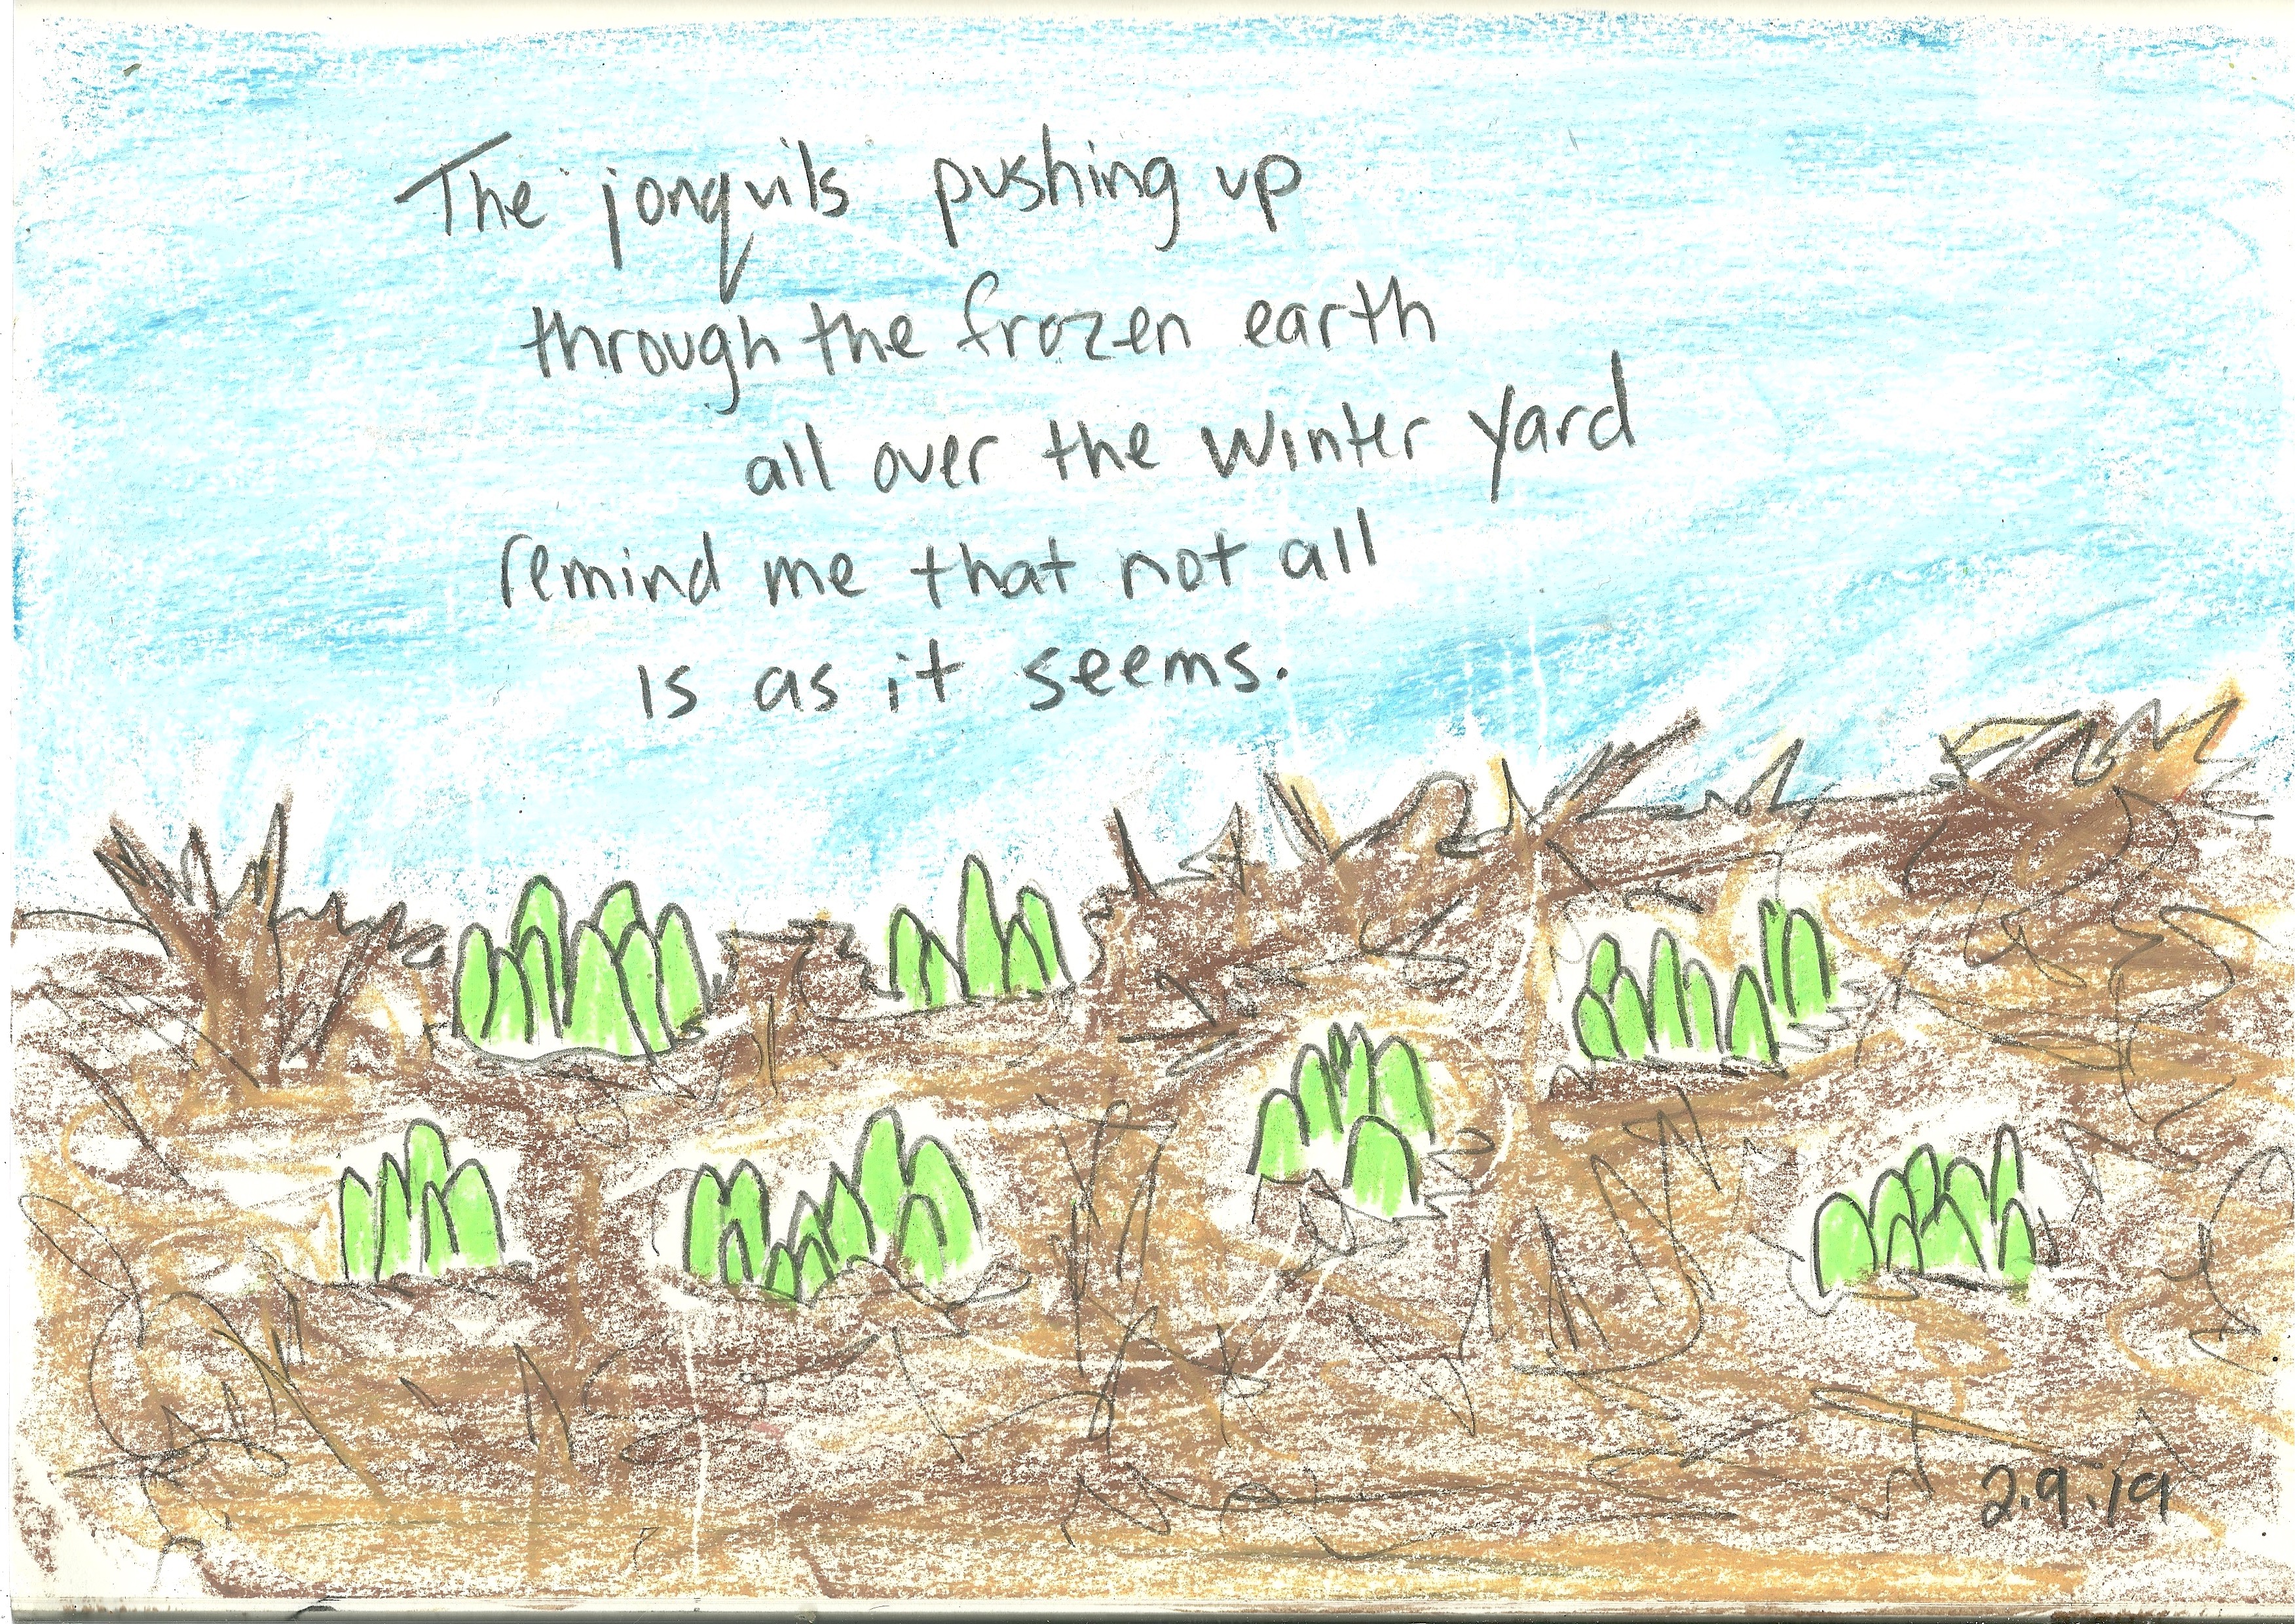 The jonquils pushing up
through the frozen earth
all over the winter yard
remind me that not all
is as it seems.
2.9.19